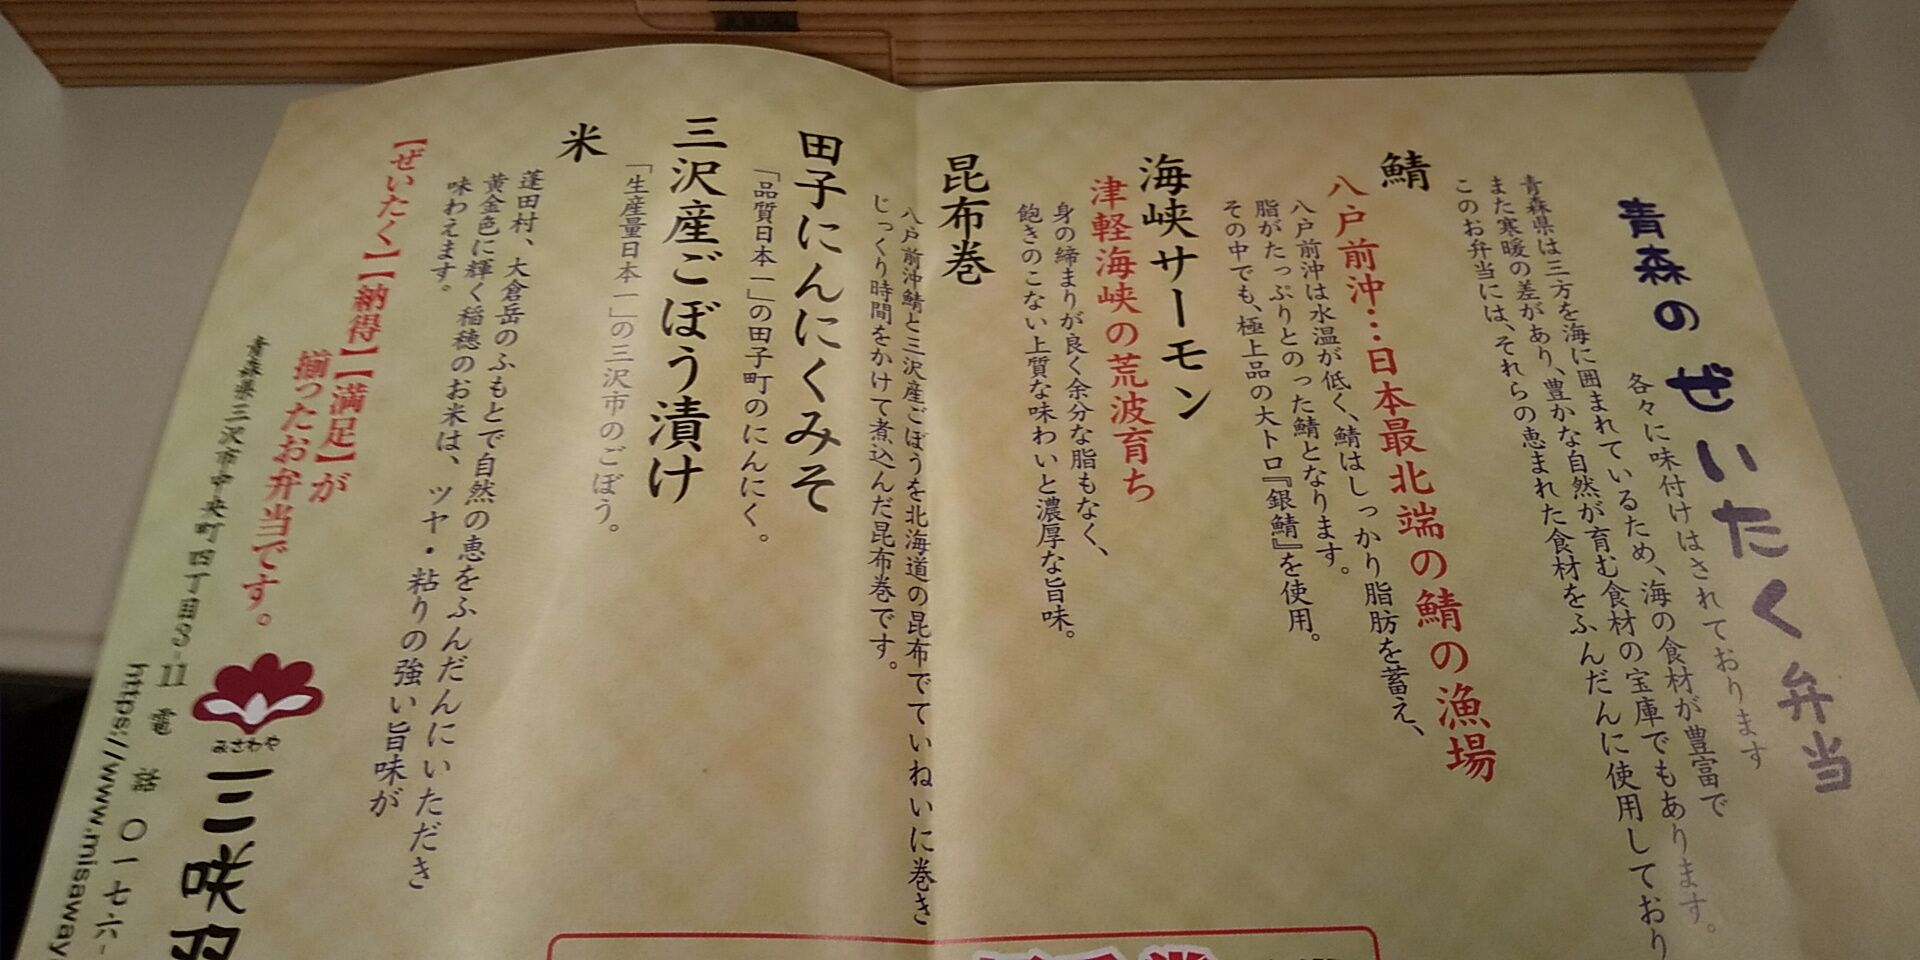 青森のぜいたく弁当
各々に味付けはされております
青森県は三方を海に囲まれているため、海の食材が豊富で
また寒暖の差があり、豊かな自然が育む食材の宝庫でもあります。
このお弁当には、それらの恵まれた食材をふんだんに使用しており
鯖
八戸前沖…日本最北端の鯖の漁場
八戸前沖は水温が低く、鯖はしっかり脂肪を蓄え、
脂がたっぷりとのった鯖となります。
その中でも、極上品の大トロ『銀鯖』を使用。
海峡サーモン
津軽海峡の荒波育ち
身の締まりが良く余分な脂もなく、
飽きのこない上質な味わいと濃厚な旨味。
昆布巻
八戸前沖鯖と三沢産ごぼうを北海道の昆布でていねいに巻き
じっくり時間をかけて煮込んだ昆布巻です。
田子にんにくみそ
「品質日本一」の田子町のにんにく。
三沢産ごぼう漬け
「生産量日本一」の三沢市のごぼう。
米
蓬田村、大倉岳のふもとで自然の恵をふんだんにいただき
黄金色に輝く稲穂のお米は、ツヤ・粘りの強い旨味が
味わえます。
【ぜいたく】【納得】【満足】が
揃ったお弁当です。
みさわや
三咲羽
青森県三沢市中央町四丁目3-11
電話 〇一七六-
https://www.misaway